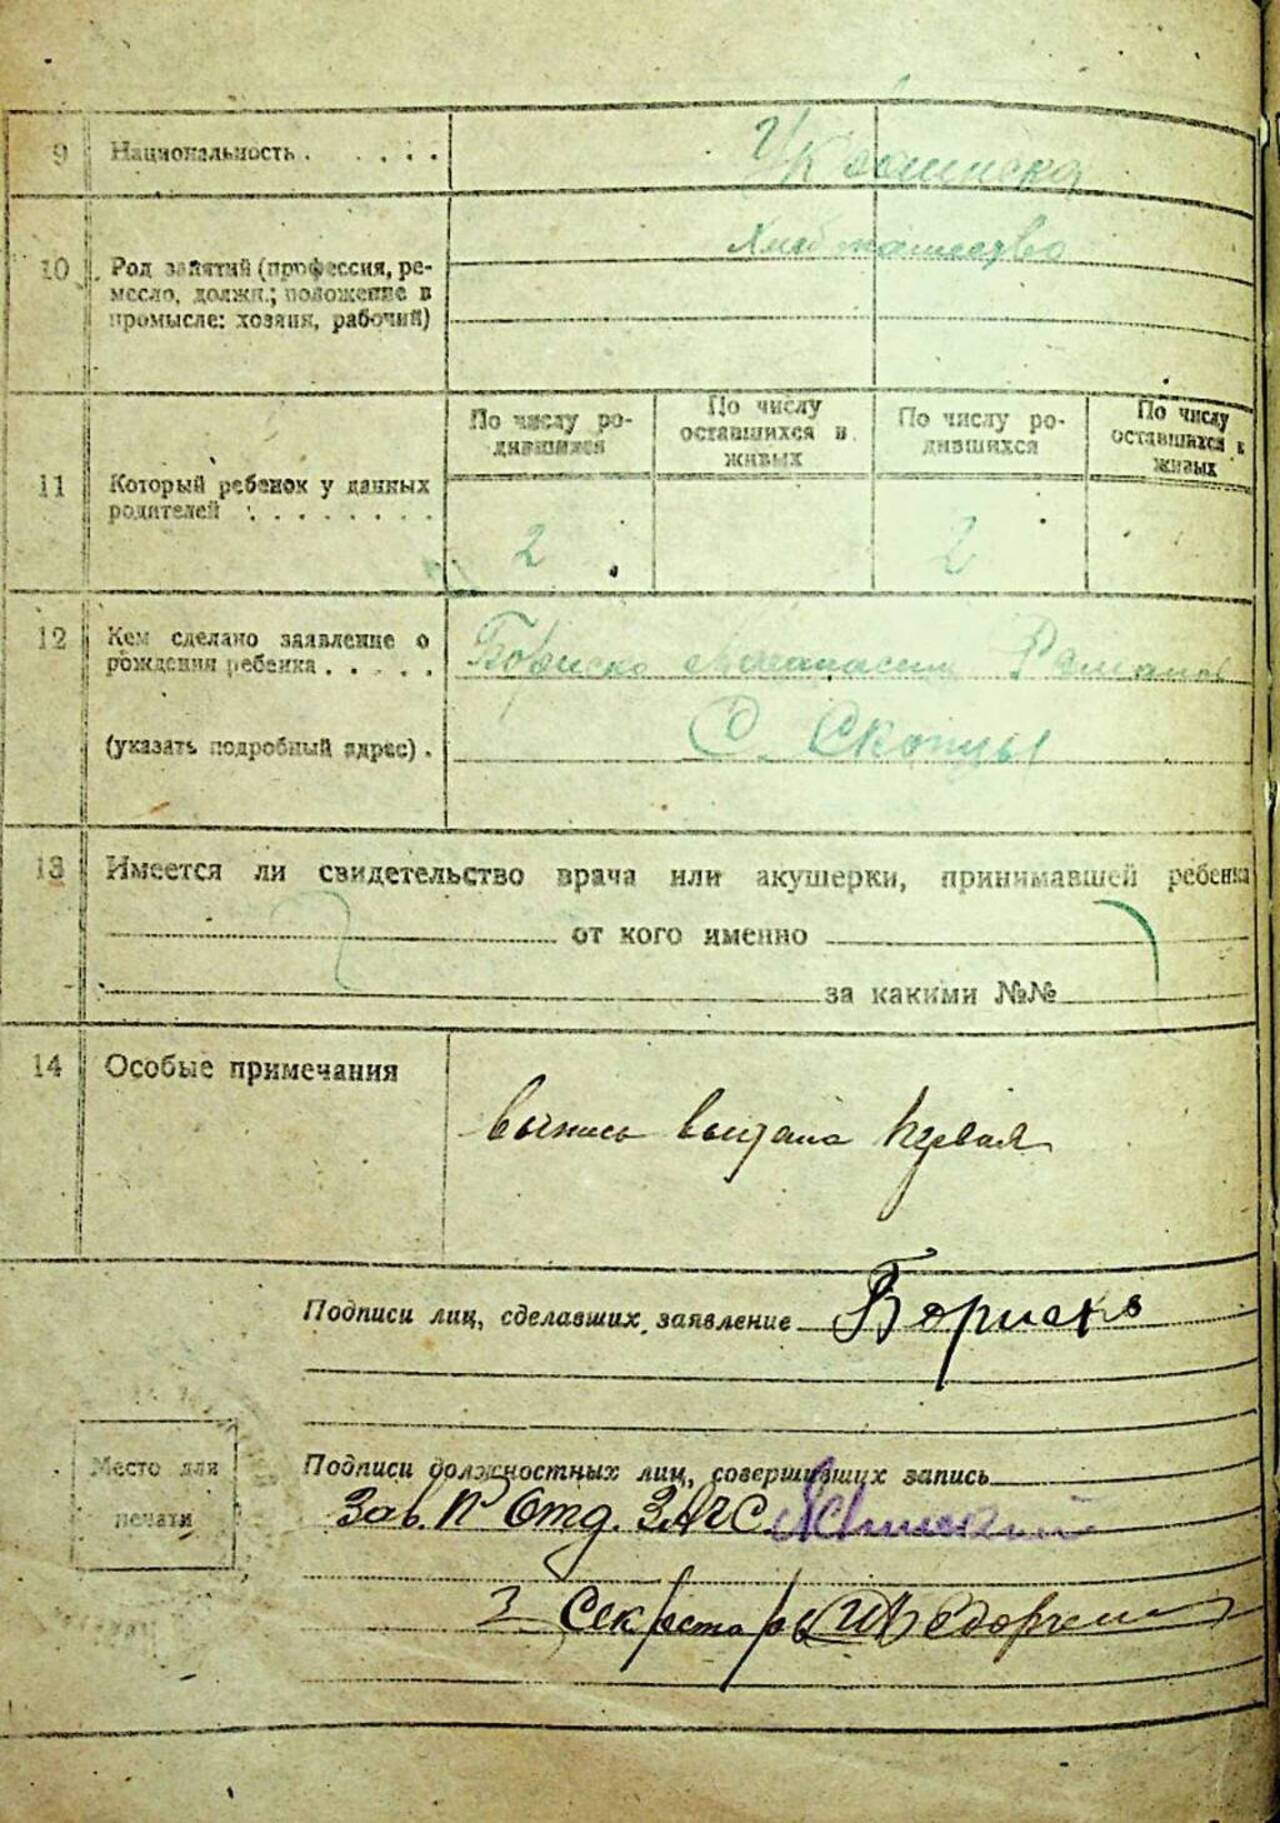 9 Национальность . . . . .
Украинска
10 Род занятий (профессия, ре-
месло, должн.; положение в
промысле: хозяин, рабочий)
Хлебопашество
По числу ро-
дившихся
По числу
оставшихся в
живых
По числу ро-
дившихся
По числу
оставшихся в
живых
11 Который ребенок у данных
родителей . . . . . . . .
2 2
12 Кем сделано заявление о
рождении ребенка . . . . .
Бориско Романов
(указать подробный адрес) .
С. Скопцы
13 Имеется ли свидетельство врача или акушерки, принимавшей ребенка
от кого именно
за какими №№
14 Особые примечания
выпись выдана первая
Подписи лиц, сделавших заявление Бориско
Место для
печати
Подписи должностных лиц, совершивших запись
Зав. Отд. ЗАГС
Секретарь